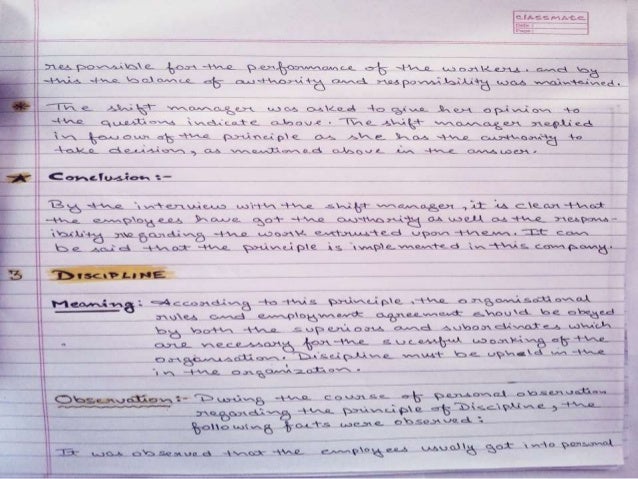 classmate
Date :
Page :
responsible for the performance of the workers. and by
this the balance of authority and responsibility was maintained.
* The shift manager was asked to give her opinion to
the questions indicate above. The shift manager replied
in favour of the principle as she has the authority to
take decision, as mentioned above in the answer.
* Conclusion :-
By the interview with the shift manager, it is clear that
the employees have got the authority as well as the respons-
ibility regarding the work entrusted upon them. It can
be said that the principle is implemented in this company.
3 DISCIPLINE
Meaning : According to this principle, the organisational
rules and employment agreement should be obeyed
by both the superiors and subordinates which
are necessary for the sucessful working of the
organisation. Discipline must be upheld in the
in the organization.
Observation :- During the course of personal observation
regarding the principle of Discipline, the
following facts were observed :
It was observed that the employees usually got into personal